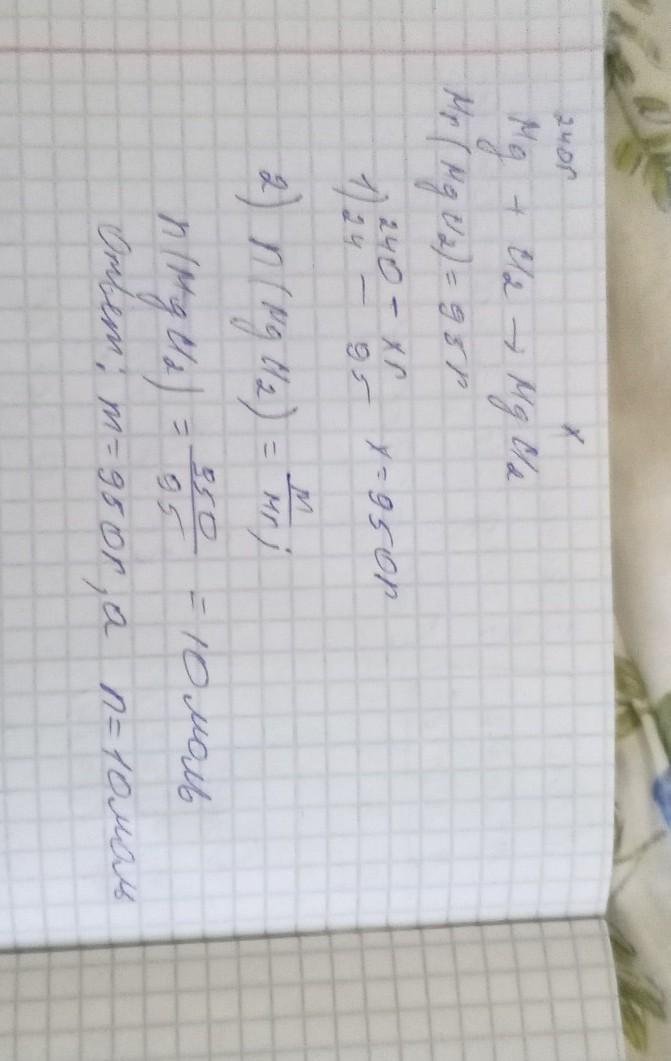 240г x
Mg + Cl2 → MgCl2
Mr(MgCl2) = 95г
1) 240 - xг
24 - 95 x = 950г
2) n(MgCl2) = m/Mr;
n(MgCl2) = 950/95 = 10 моль
Ответ: m = 950г, а n = 10 моль